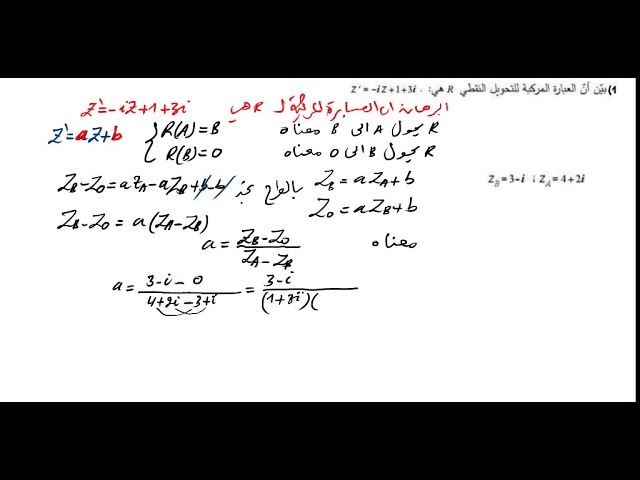 1) بيّن أنّ العبارة المركبة للتحويل النقطي R هي: ، Z' = -iZ+1+3i
البرهان ان العبارة المركبة لـ R هي Z'=-iZ+1+3i
Z'=aZ+b
R يحول A الى B معناه R(A)=B
R يحول B الى O معناه R(B)=0
Z_B = 3-i ; Z_A = 4+2i
Z_B = aZ_A+b
Z_O = aZ_B+b
بالطرح نجد Z_B-Z_O=aZ_A-aZ_B+b-b
Z_B-Z_O = a(Z_A-Z_B)
معناه a = \frac{Z_B-Z_O}{Z_A-Z_B}
a = \frac{3-i-0}{4+2i-3+i} = \frac{3-i}{(1+3i)(}